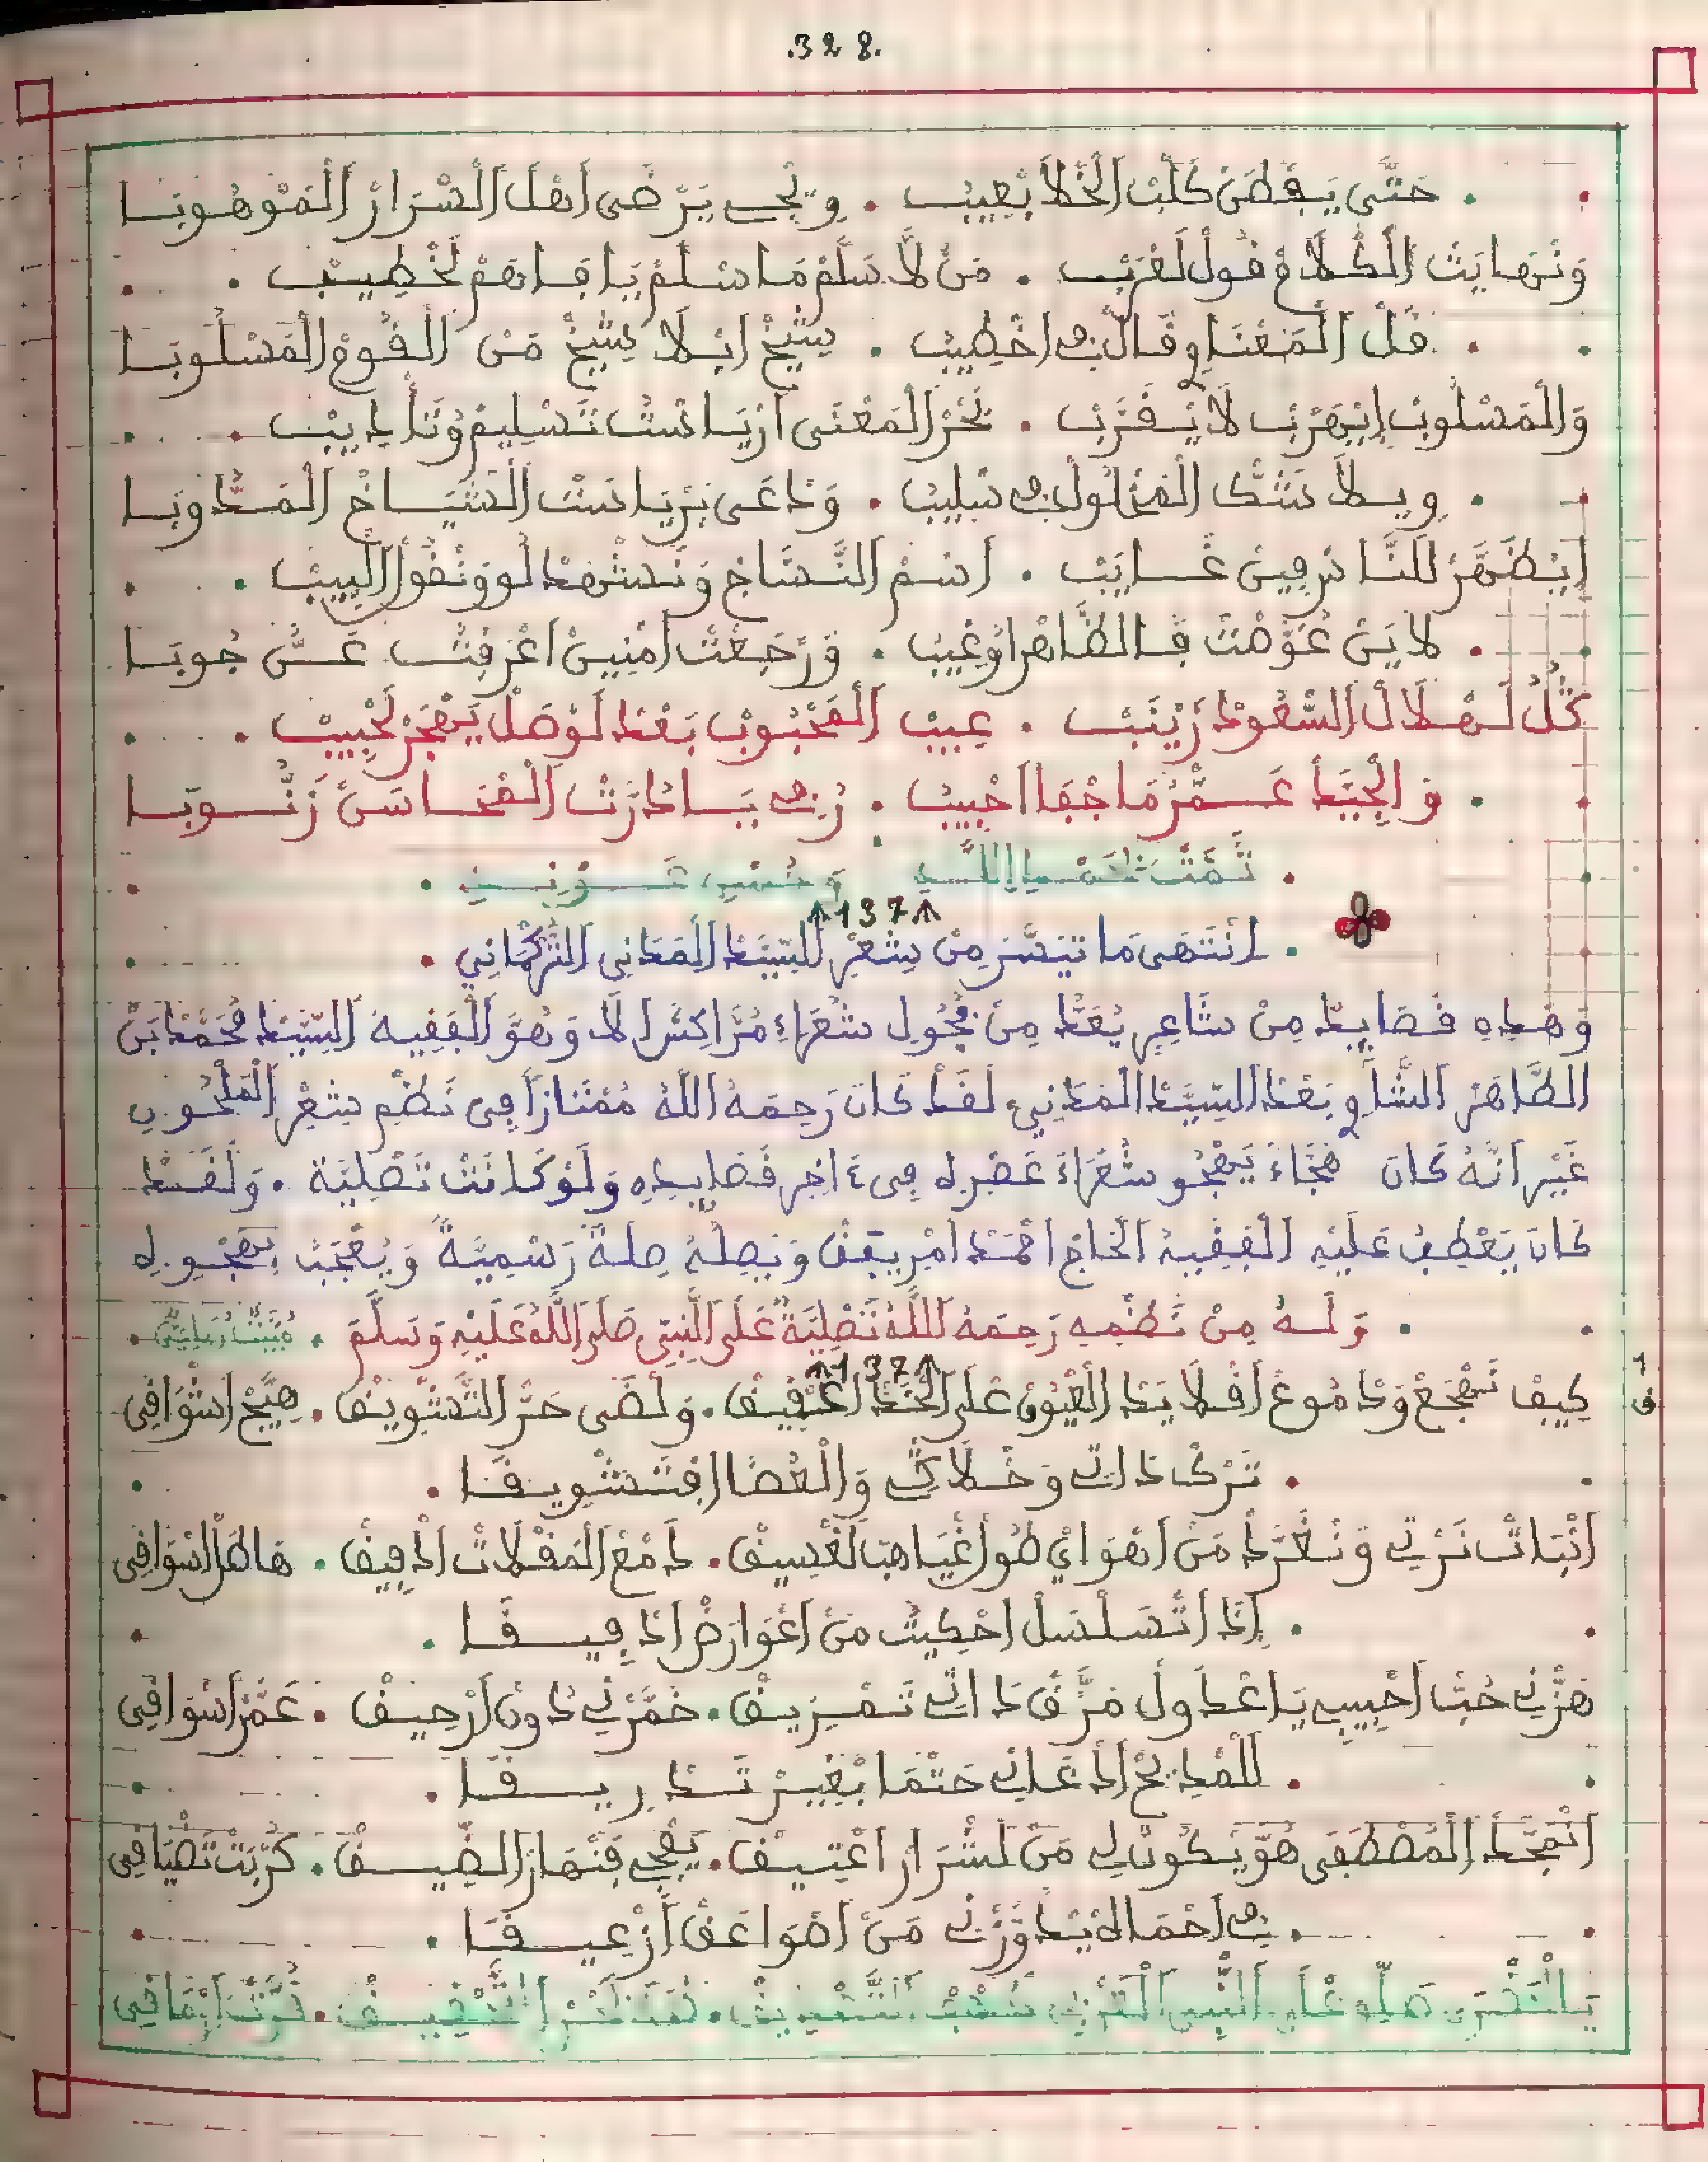 .328.
حَتَّى يَفْطَنْ كَلْبْ الْخْلَا بْعِيبُ . وِيْجِي يَرْضَى أَهْلْ الْسْرَارْ الْمَوْهُوبَا
وَنْهَايَتْ الْكْلَامْ قُولْ لَعْرَبْ . مَنْ لَا سَلَّمْ مَا سْلَمْ يَا فَاهَمْ لَخْطِيبْ .
قَلْ الْمَعْنَا وِقَالْ بِي اخْطِيبُ . شِيخْ ابْلَا شِيخْ مَنْ الْقُومْ الْمَسْلُوبَا
وَالْمَسْلُوبْ ابْهَرْبْ لَا يْقَرَّبْ . بَحْرْ الْمَعْنَى ارْيَاسْتُ تَسْلِيمْ وُتَأْدِيبْ
وِيلَا شَتْكْ الْمَخْلُولْ بِي سْلِيبُ . وَدْعَى بْرْيَاسَتْ الْشْيَاخْ الْمَنْدُوبَا
ايْظَهَرْ لَلنَّاسْ فِينْ غَايَبْ . اسْمْ النَّسَّاجْ وَنْشْهَدْ لُو وَنْقُولْ الْبِيبْ .
لَايَنْ عَوَّمْتْ فَالظَّاهَرْ اوْغِيبُ . وَرْجَعْتْ امْنِينْ اعْرَفْتْ عَنْ جُوبَا
كُلْ لَهْلَالْ السْعُودْ زَيْنَبْ . عِيبْ الْمَحْبُوبْ بَعْدْ لَوْصَلْ يَهْجَرْ لَحْبِيبْ .
وَالْجِيَّدْ عَمْرُ مَا جْفَا احْبِيبُ . رْبِي يَا دُرَّتْ الْمْحَاسَنْ زَنُّوبَا
تَمَّتْ بِحَمْدِ اللَّهِ وَحُسْنِ عَوْنِهِ .
↑137↑
. انْتَهَى مَا تَيَسَّرَ مِنْ شِعْرِ السِّيَّدْ الْمَدَنِي التُّرْكْمَانِي .
وَهَذِهِ قَصَايِدْ مِنْ شَاعِرٍ يُعَدُّ مِنْ فُحُولِ شُعَرَاءِ مُرَّاكِشْ الَا وَهُوَ الْفَقِيهْ السِّيَّدْ مُحَمَّدْ بَنْ
الطَّاهَرْ الشَّاوِي بَعْدَ السِّيَّدْ الْمَدَنِي، لَقَدْ كَانَ رَحِمَهُ اللَّهُ مُمْتَازًا فِي نَظْمِ شِعْرِ الْمَلْحُونِ
غَيْرَ أَنَّهُ كَانَ هَجَّاءً يَهْجُو شُعَرَاءَ عَصْرِهِ فِي ءَاخِرِ قَصَايِدِهِ وَلَوْ كَانَتْ تَصْلِيَّة . وَلَقَدْ
كَانَ يَعْطِفُ عَلَيْهِ الْفَقِيهُ الْحَاجْ احْمَدْ امْرِيفَقْ وَيَصِلُهُ صِلَةً رَسْمِيَّةً وَيُعْجَبُ بِهَجْوِهِ
. وَلَهُ مِنْ نَظْمِهِ رَحِمَهُ اللَّهُ تَصْلِيَّةٌ عَلَى النَّبِيِّ صَلَّى اللَّهُ عَلَيْهِ وَسَلَّمَ .
↑137↑
1
ف
كِيفْ نَهْجَعْ وَدْمُوعْ افْلَايَدْ الْعْيُونْ عْلَى الْخَدْ اعْقِيقْ . وَلْضَى حَرّْ التَّشْوِيقْ . هِيَّجْ اشْوَاقِي
. تَرْكْ ذَاتِي وَخْلَاكِي وَالْعْضَا افْتَشْوِيقَا .
انْبَاتْ نَرْتِي وَنْغَرَّدْ مَنْ اهْوَايْ طُولْ غْيَاهَبْ لَغْسِيقْ . دَمْعْ الْمَقْلَاتْ ادْفِيقْ . هَاطَلْ اسْوَاقِي
. إِذَا اتْسَلْسَلْ احْكِيتْ مَنْ اعْوَارَضْ ادْفِيقَا .
هَزْنِي حُبّْ احْبِيبِي يَا عْدُولْ مَزَّقْ ذَاتِي تَمْزِيقْ . خَمَّرْنِي دُونْ ارْحِيقْ . عَمَّرْ اسْوَاقِي
. لَلْمْدِيحْ ادْعَانِي حَتْمَا بْغِيرْ تَدْرِيقَا .
انْمَجَّدْ الْمُصْطَفَى هُوَ يْكُونْ لِي مَنْ لَشْرَارْ اعْتِيقْ . يَفْجِي فَنْهَارْ الضِّيقْ . كُرْبَتْ تَضْيَاقِي
. بِي احْمَالْ يْدَوَّزْنِي مَنْ اهْوَا عَقْ ازْعِيقَا .